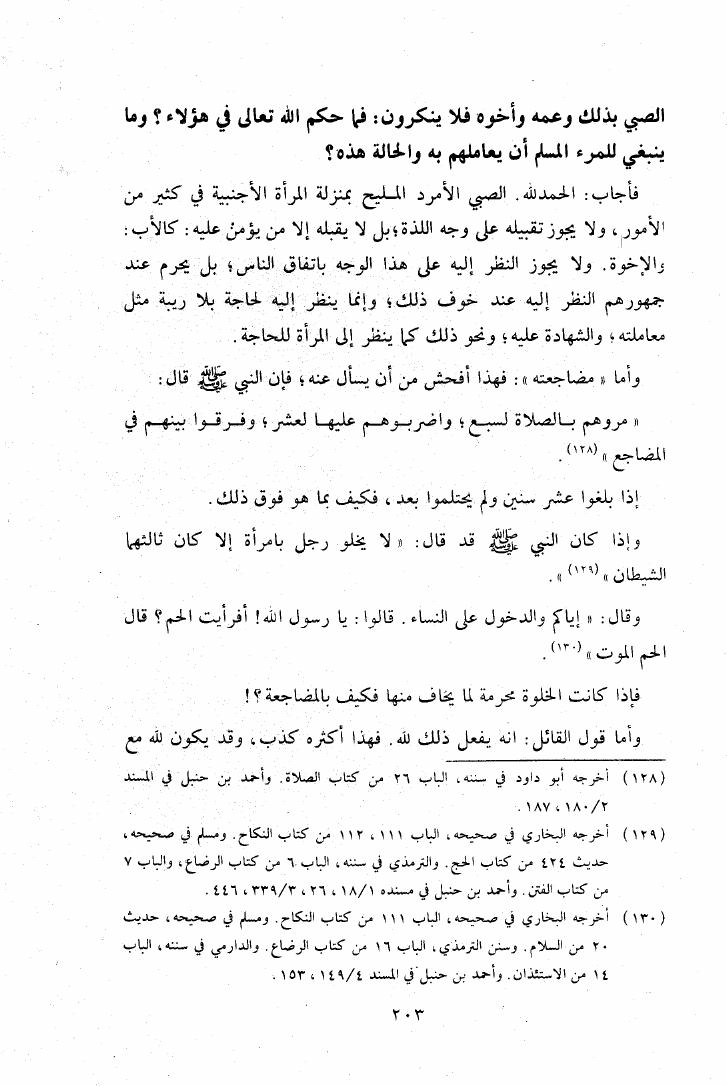 الصبي بذلك وعمه وأخوه فلا ينكرون: فما حكم الله تعالى في هؤلاء؟ وما
ينبغي للمرء المسلم أن يعاملهم به والحالة هذه؟
فأجاب: الحمدلله. الصبي الأمرد المليح بمنزلة المرأة الأجنبية في كثير من
الأمور، ولا يجوز تقبيله على وجه اللذة؛ بل لا يقبله إلا من يؤمنُ عليه: كالأب:
والإخوة. ولا يجوز النظر إليه على هذا الوجه باتفاق الناس؛ بل يحرم عند
جمهورهم النظر إليه عند خوف ذلك؛ وإنما ينظر إليه لحاجة بلا ريبة مثل
معاملته؛ والشهادة عليه؛ ونحو ذلك كما ينظر إلى المرأة للحاجة.
وأما « مضاجعته »: فهذا أفحش من أن يسأل عنه؛ فإن النبي ﷺ قال:
« مروهم بالصلاة لسبع؛ واضربوهم عليها لعشر؛ وفرقوا بينهم في
المضاجع » (١٢٨).
إذا بلغوا عشر سنين ولم يحتلموا بعد، فكيف بما هو فوق ذلك.
وإذا كان النبي ﷺ قد قال: « لا يخلو رجل بامرأة إلا كان ثالثهما
الشيطان » (١٢٩) ».
وقال: « إياكم والدخول على النساء. قالوا: يا رسول الله! أفرأيت الحم؟ قال
الحم الموت » (١٣٠).
فإذا كانت الخلوة محرمة لما يخاف منها فكيف بالمضاجعة؟!
وأما قول القائل: انه يفعل ذلك لله. فهذا أكثره كذب، وقد يكون لله مع
(١٢٨) أخرجه أبو داود في سننه، الباب ٢٦ من كتاب الصلاة. وأحمد بن حنبل في المسند
٢/١٨٠، ١٨٧.
(١٢٩) أخرجه البخاري في صحيحه، الباب ١١١، ١١٢ من كتاب النكاح. ومسلم في صحيحه،
حديث ٤٢٤ من كتاب الحج. والترمذي في سننه، الباب ٦ من كتاب الرضاع، والباب ٧
من كتاب الفتن. وأحمد بن حنبل في مسنده ١/١٨، ٢٦، ٣/٣٣٩، ٤٤٦.
(١٣٠) أخرجه البخاري في صحيحه، الباب ١١١ من كتاب النكاح. ومسلم في صحيحه، حديث
٢٠ من السلام. وسنن الترمذي، الباب ١٦ من كتاب الرضاع. والدارمي في سننه، الباب
١٤ من الاستئذان. وأحمد بن حنبل في المسند ٤/١٤٩، ١٥٣.
٢٠٣